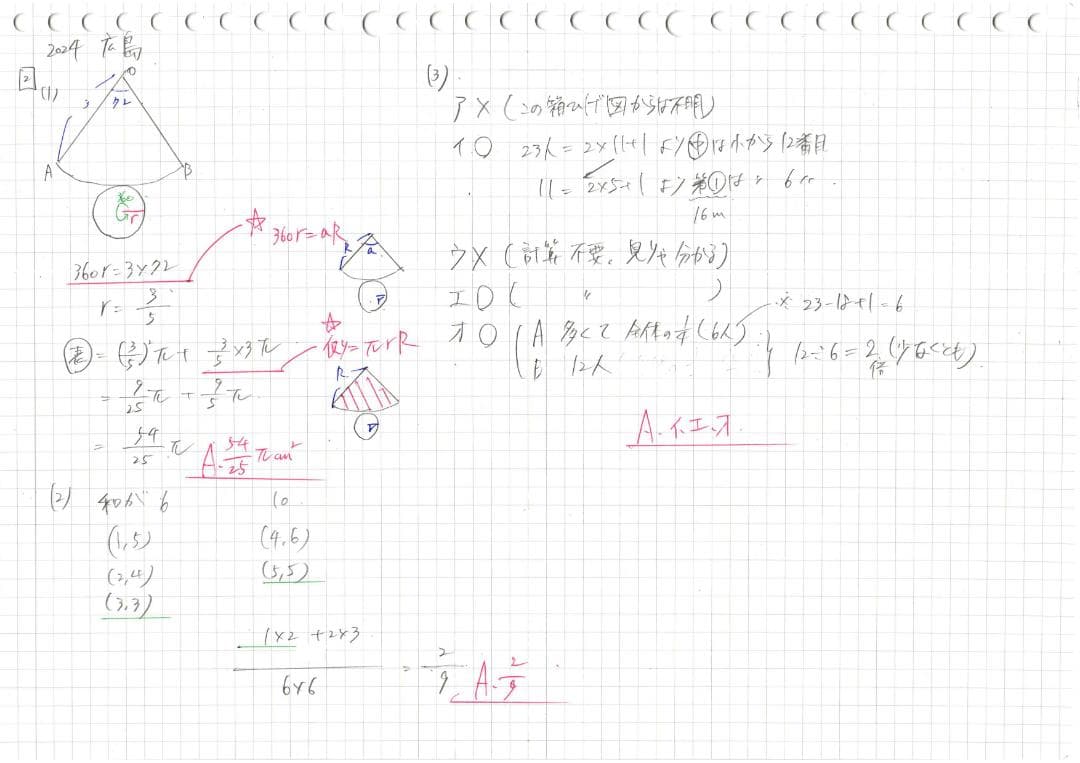 2024 広島
2
(1)
O
3
72
A
B
360
r
☆ 360r=aR
R
a
r
360r=3×72
r= 3/5
表 = (3/5)²π + 3/5×3π
☆ 側y=πrR
R
r
= 9/25π + 9/5π
= 54/25π
A. 54/25πcm²
(2) 和が6 10
(1,5) (4,6)
(2,4) (5,5)
(3,3)
(1×2+2×3)/(6×6) = 2/9
A. 2/9
(3)
ア×(この箱ひげ図からは不明)
イ○ 23人=2×11+1より中は小から12番目
11=2×5+1より第①は〃 6〃
16m
ウ×(計算不要、見りゃ分かる)
エ○( 〃 )
※ 23-18+1=6
オ○ A 多くて全体の1/4(6人)
B 12人
12÷6=2倍(少なくとも)
A. イ、エ、オ